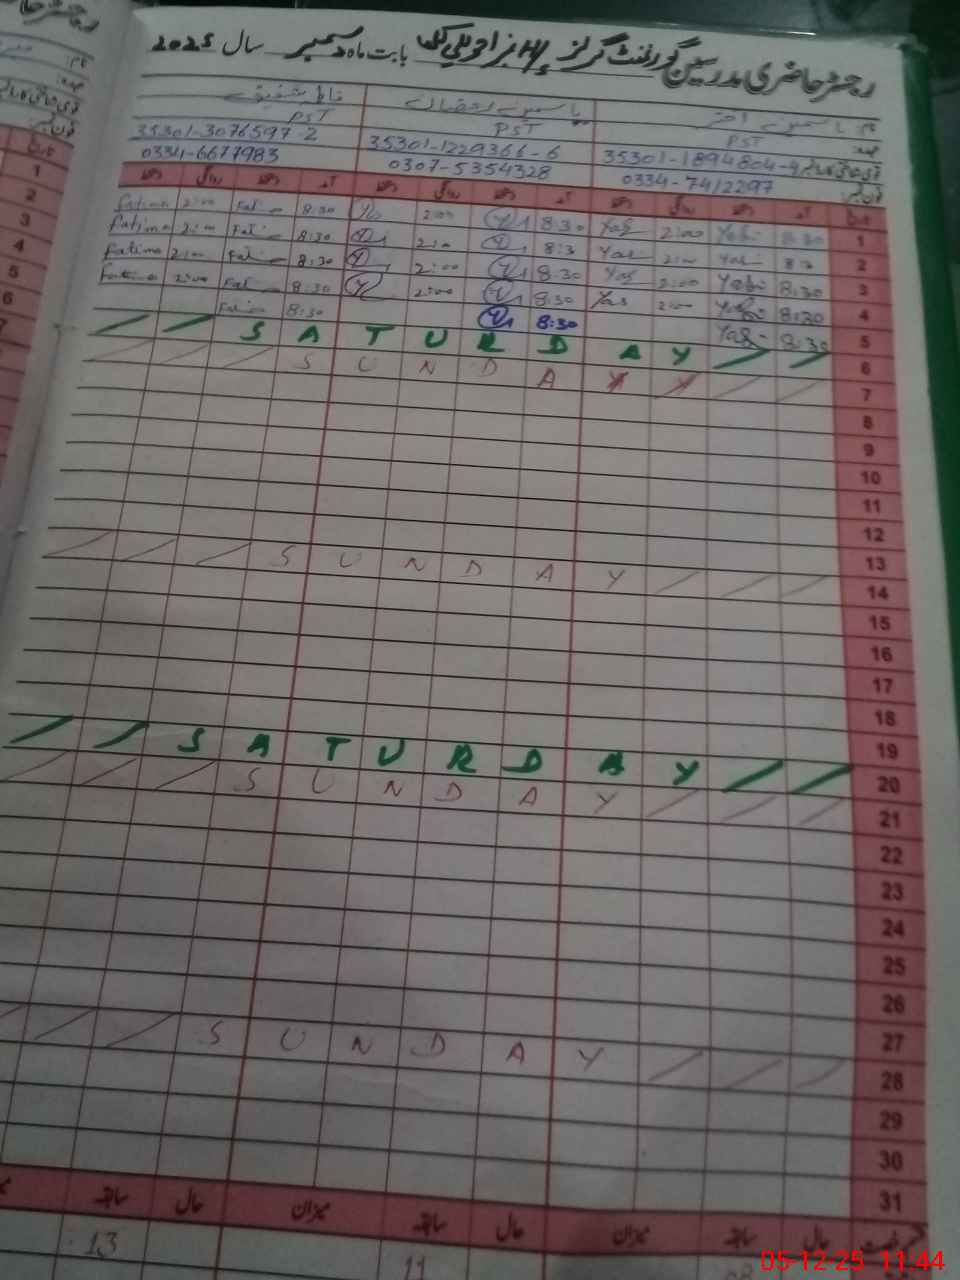 رجسٹر حاضری مدرسین گورنمنٹ گرلز بابت ماہ دسمبر سال 2025
نام: یاسمین اختر یاسمین فاطمہ شفیق
عہدہ: PST PST PST
35301-1894804-4 35301-1229366-6 35301-3076597-2
فون نمبر: 0334-7412297 0307-5354328 0334-6677983
تاریخ آمد دستخط روانگی دستخط آمد دستخط روانگی دستخط آمد دستخط روانگی دستخط
1 8:30 2:00 Yas 8:30 2:00 8:30 Fati 2:00 Fatima
2 8:3 2:00 Yas 8:3 2:00 8:30 Fati 2:00 Fatima
3 8:30 2:00 Yas 8:30 2:00 8:30 Fati 2:00 Fatima
4 8:30 2:00 Yas 8:30 2:00 8:30 Fati 2:00 Fatima
5 8:30 8:30 8:30
6 SATURDAY
7 SUNDAY
8
9
10
11
12
13
14 SUNDAY
15
16
17
18
19
20 SATURDAY
21 SUNDAY
22
23
24
25
26
27
28 SUNDAY
29
30
31
رخصت حال سابقہ میزان حال سابقہ میزان حال سابقہ
11 13
05-12-25 11:44